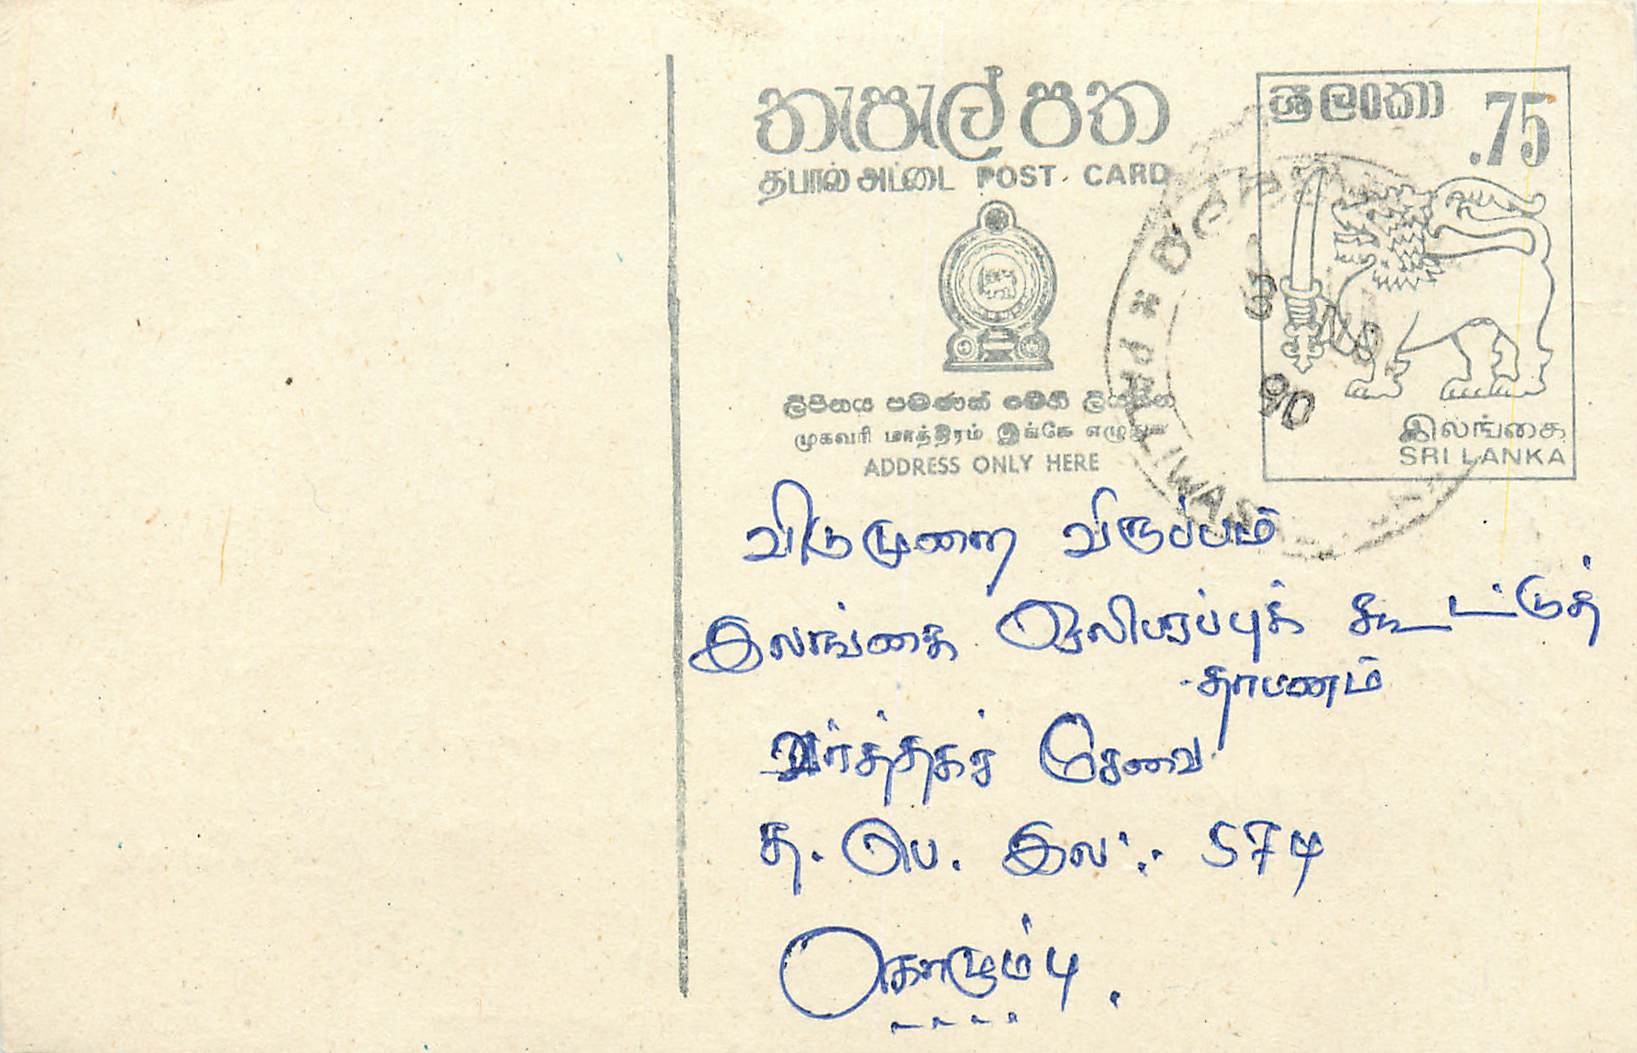 තැපැල් පත
தபால் அட்டை POST CARD
ශ්‍රී ලංකා .75
ලිපිනය පමණක් මෙහි ලියන්න
முகவரி மாத்திரம் இங்கே எழுதுக
ADDRESS ONLY HERE
இலங்கை
SRI LANKA
PALLIWAS
90
விடுமுறை விருப்பம்
இலங்கை ஒலிபரப்புக் கூட்டுத்
தாபனம்
வர்த்தகச் சேவை
த. பெ. இல: 574
கொழும்பு.